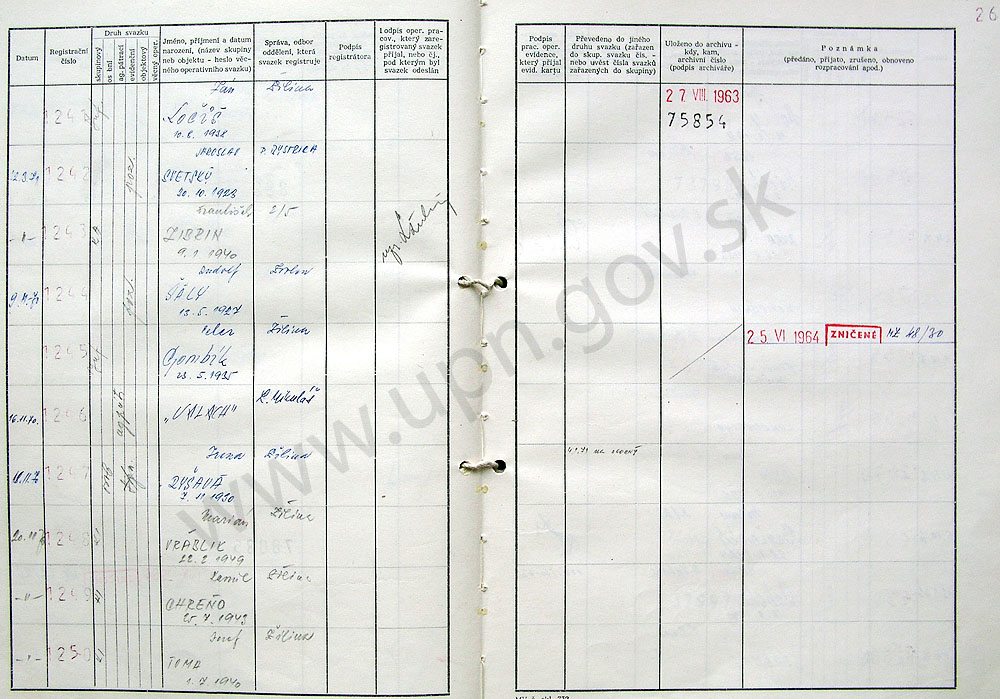 26
Datum
Registrační číslo
Druh svazku
skupinový
os bní
ag. pátrací
evidenční
objektový
věcný oper.
Jméno, příjmení a datum narození, (název skupiny neb objektu - heslo věcného operativního svazku)
Správa, odbor oddělení, která svazek registruje
Podpis registrátora
Podpis oper. pracov., který zaregistrovaný svazek přijal, nebo čj., pod kterým byl svazek odeslán
Podpis prac. oper. evidence, který přijal evid. kartu
Převedeno do jiného druhu svazku (zařazen do skup. svazku čís. - nebo uvést čísla svazků zařazených do skupiny)
Uloženo do archivu - kdy, kam, archivní číslo (podpis archiváře)
Poznámka
(předáno, přijato, zrušeno, obnoveno rozpracování apod.)
Ján Žilina
1241
10.8.1938
27 VIII. 1963
75854
JAROSLAV B. BYSTRICA
1242
SVETSKÝ
20.10.1923
František 2/5
-"- 1243
9.1.1940
Rudolf Zvolen
1244
ŠÁLY
13.5.1927
Peter Žilina
1245
Gombík
23.5.1935
25 VI 1964 ZNIČENÉ
16.11.70. 1246
„VALACH"
L. Mikuláš
Irena Žilina
1247
RYŠAVÁ
7.11.1930
Marian Žilina
1248
VRÁBLIK
22.2.1949
Kamil Žilina
-"- 1249
CHREŇO
25.7.1943
Jozef Žilina
-"- 1250
TOMA
1.7.1940
www.upn.gov.sk